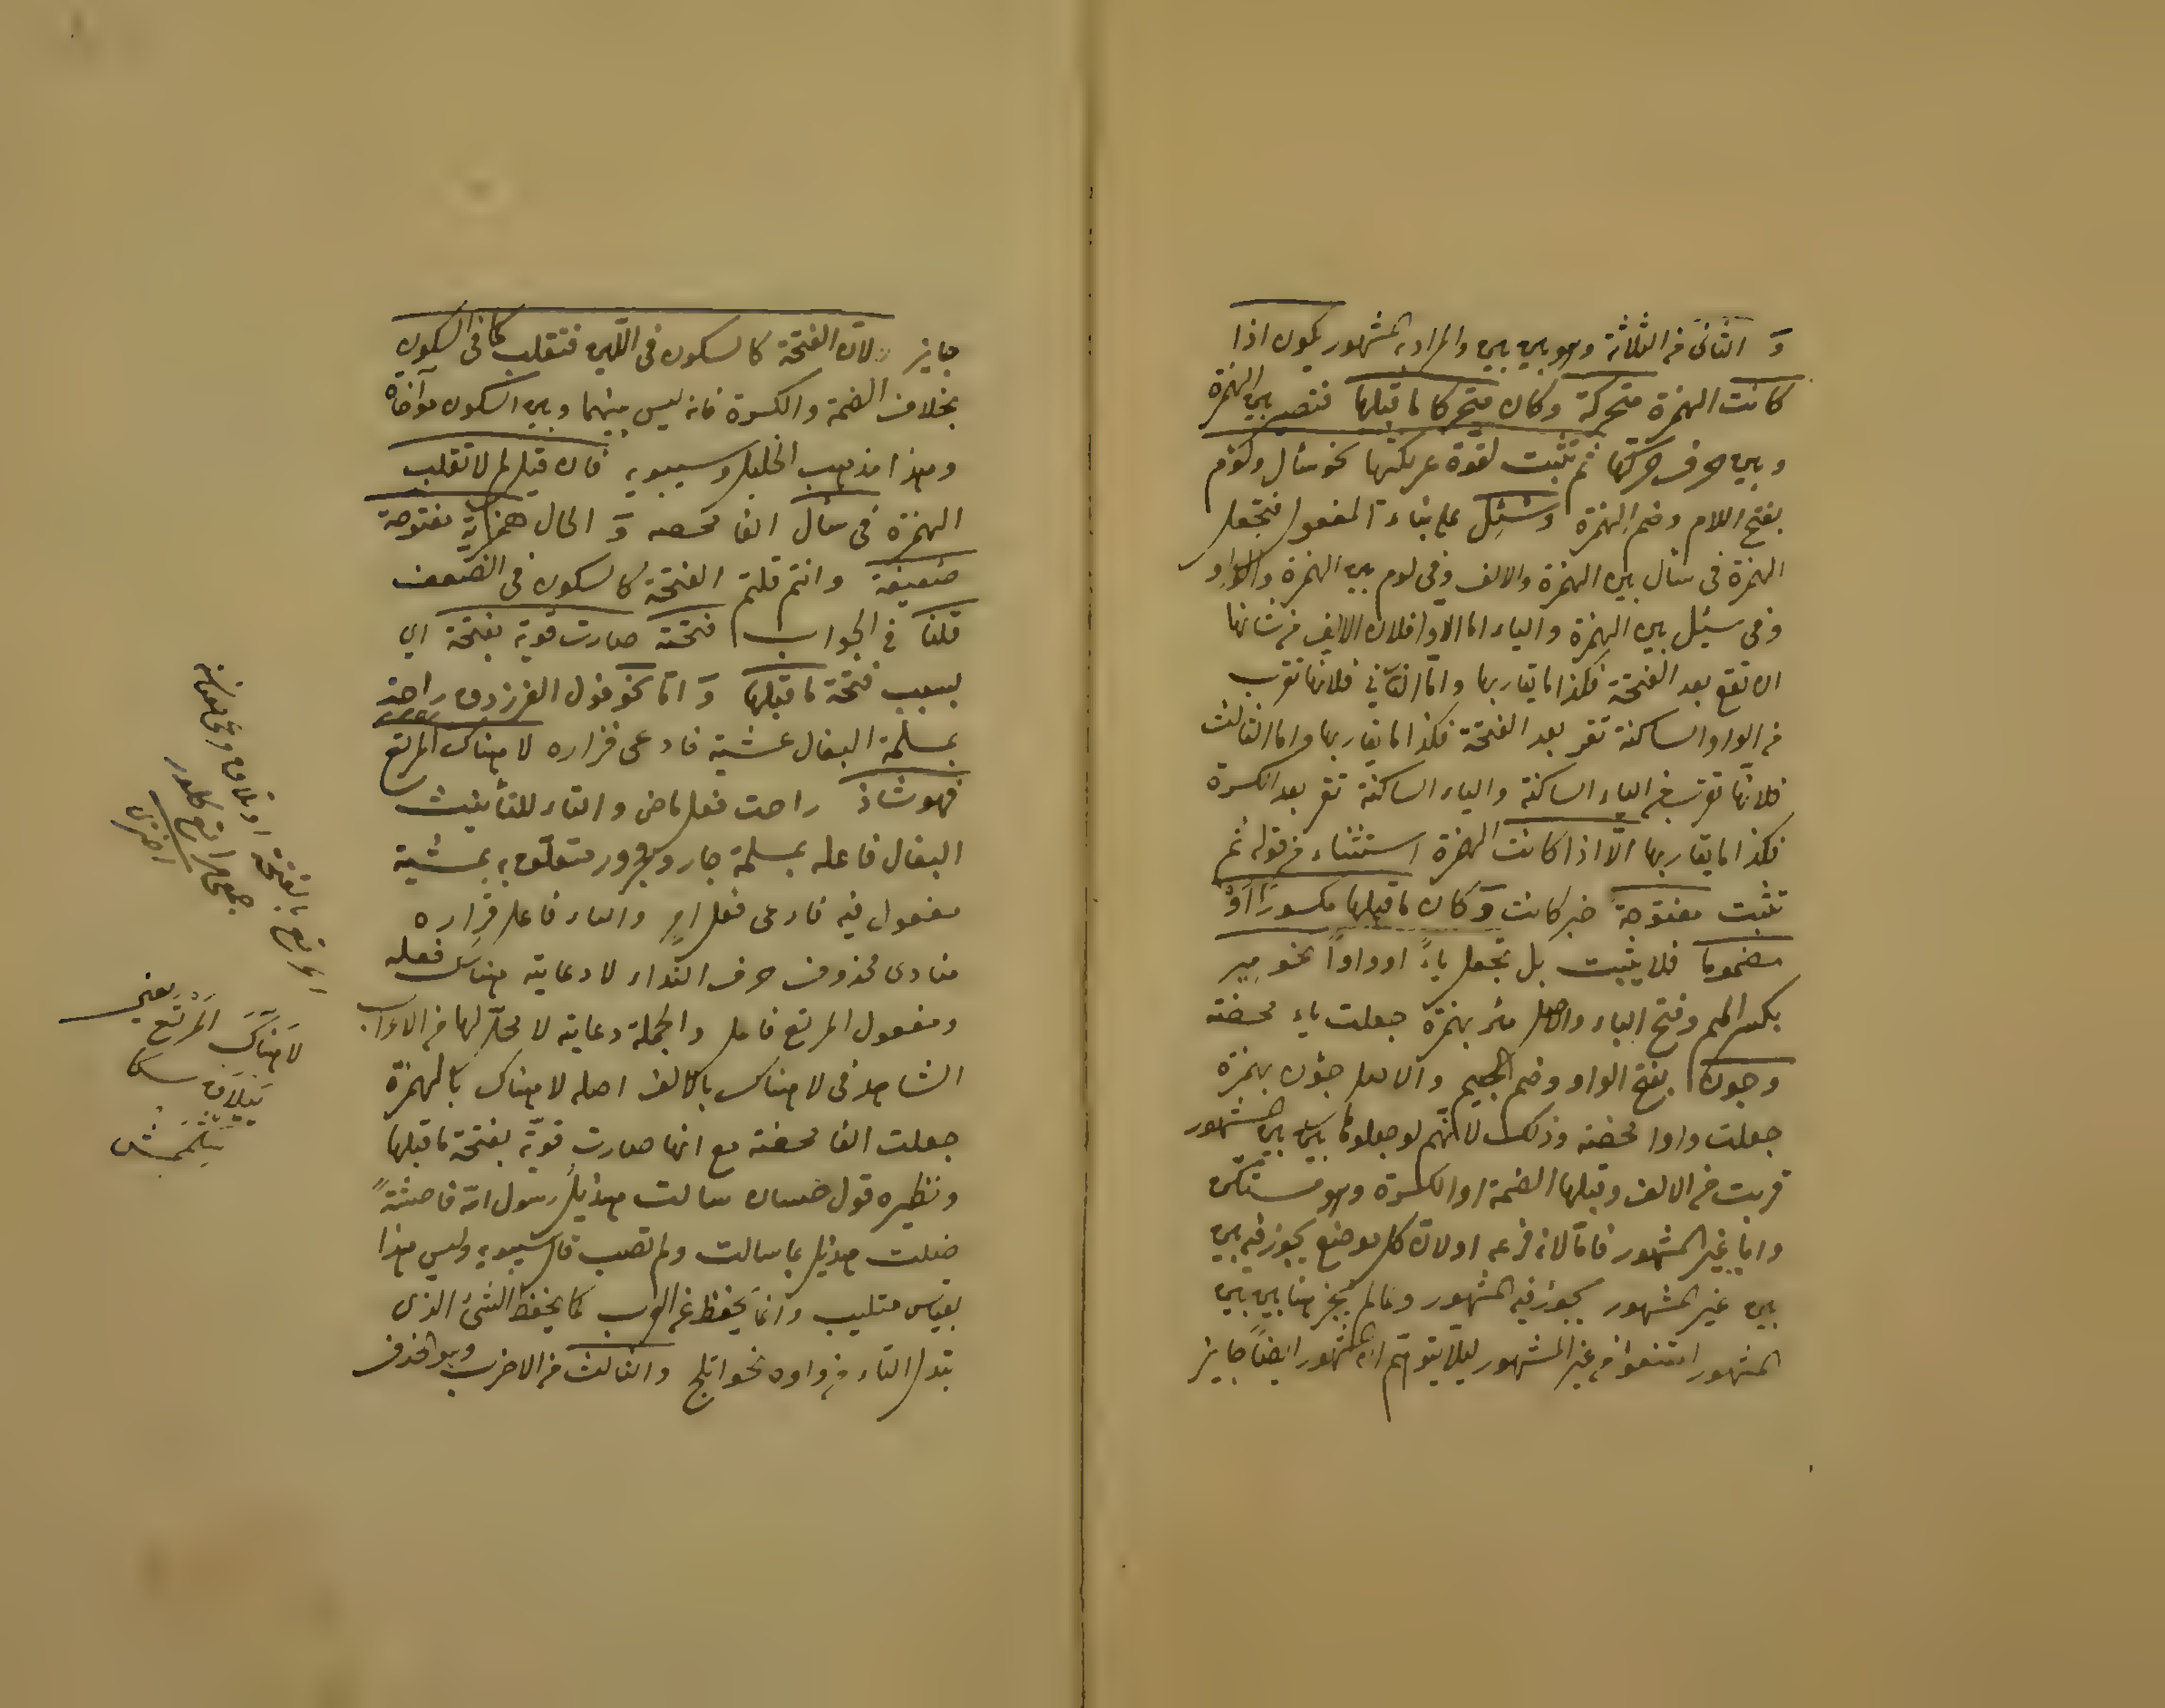 وَ الثانى من الثلاثة وهو بين بين والمراد به المشهور يكون اذا
كانت الهمزة متحركة وكان متحركا ما قبلها فتصير بين الهمزة
وبين حرف حركتها ثم تثبت لقوة عريكتها نحو سأل ولؤم
بفتح اللام وضم الهمزة وسُئِل على بناء المفعول فتجعل
الهمزة فى سأل بين الهمزة والالف وفى لوم بين الهمزة والواو
وفى سئل بين الهمزة والياء اما الاول فلان الالف من شانها
ان تقع بعد الفتحة فكذا ما يقاربها واما الثانى فلانها تقرب
من الواو الساكنة تقر بعد الفتحة فكذا ما يقاربها واما الثالث
فلانها تقرب من الياء الساكنة والياء الساكنة تقر بعد الكسرة
فكذا ما يقاربها الّا اذا كانت الهمزة استثناء من قوله ثم
تثبت مفتوحة خبر كانت وَ كان ما قبلها مكسورًا اَوْ
مضموما فلا يثبت بل تجعل ياءً او واواً نحو مِير
بكسر الميم وفتح الياء والاصل مئر بهمزة جعلت ياء محضة
وجون بفتح الواو وضم الجيم والاصل جؤن بهمزة
جعلت واوا محضة وذلك لانّهم لو جعلوها بين بين المشهور
قربت من الالف وقبلها الضمة او الكسرة وهو مستكره
واما غير المشهور فاما لانه فرعه او لان كل موضع يجوز فيه بين
بين غير المشهور يجوز فيه المشهور وعالم يجز هنا بين بين
المشهور امتنعوا من غير المشهور ليلا يتوهم ان المشهور ايضاً جايز
جايز لانّ الفتحة كالسكون فى اللين فتقلب كما فى السكون
بخلاف الضمة والكسرة فانه ليس بينهما وبين السكون مواخاة
وهذا مذهب الخليل وسيبويه فان قيل لم لا تقلب
الهمزة فى سأل الفا محضه وَ الحال همزته مفتوحة
ضعيفة وانتم قلتم الفتحة كالسكون فى الضعف
قلنا فى الجواب فتحته صارت قوية بفتحة اى
بسبب فتحة ما قبلها وَ امّا نحو قول الفرزدق راحت
بمسلمة البغال عشية فارعى فزاره لا هناك المرتع
فهو شاذ راحت فعل ماض والتاء للتأنيث
البغال فاعله بمسلمة جار ومجرور متعلق به بمشية
مفعول فيه فارعى فعل امر والياء فاعل فزاره
منادى محذوف حرف النداء لا دعاية هناك فعله
ومفعول المرتع فاعل والجملة دعاية لا محلّ لها من الاعراب
الشاهد فى لا هناك بالالف اصله لا هناك بالهمزة
جعلت الفا محضة مع انها صارت قوّية بفتحة ما قبلها
ونظيره قول حسان سالت هذيل رسول الله فاحشةً
ضلت هذيل بما سالت ولم تصب قال سيبويه وليس هذا
بقياس متليب وانما يحفظ عن العرب كما يحفظ الشئ الذى
تبدل التاء من واوه نحو اتلج والثالث من الاضرب وهو الحذف
لَا هَنَاكَ المَرْتَع يعنى